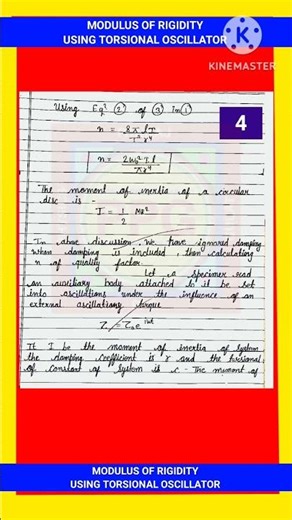 MODULUS OF RIGIDITY
USING TORSIONAL OSCILLATOR
K
KINEMASTER
4
Using Eqⁿ ② of ③ In ①
n = 8π l T / T² r⁴
n = 2ω₀² I l / π r⁴
The moment of inertia of a circular
disc is -
I = 1/2 MR²
In above discussion, we have ignored damping
when damping is included, then calculating
n of quality factor.
Let a specimen
an auxiliary body attached to it be set
into oscillations under the influence of an
external oscillationary torque
If I be the moment of inertia of system
the damping coefficient is r and the torsional
of constant of system is c - The moment of
MODULUS OF RIGIDITY
USING TORSIONAL OSCILLATOR